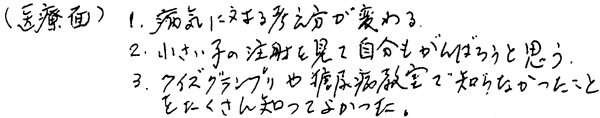 (医療面) 1. 病気に対する考え方が変わる.
2. 小さい子の注射を見て自分もがんばろうと思う.
3. クイズグランプリや糖尿病教室で知らなかったこと
をたくさん知ってよかった。